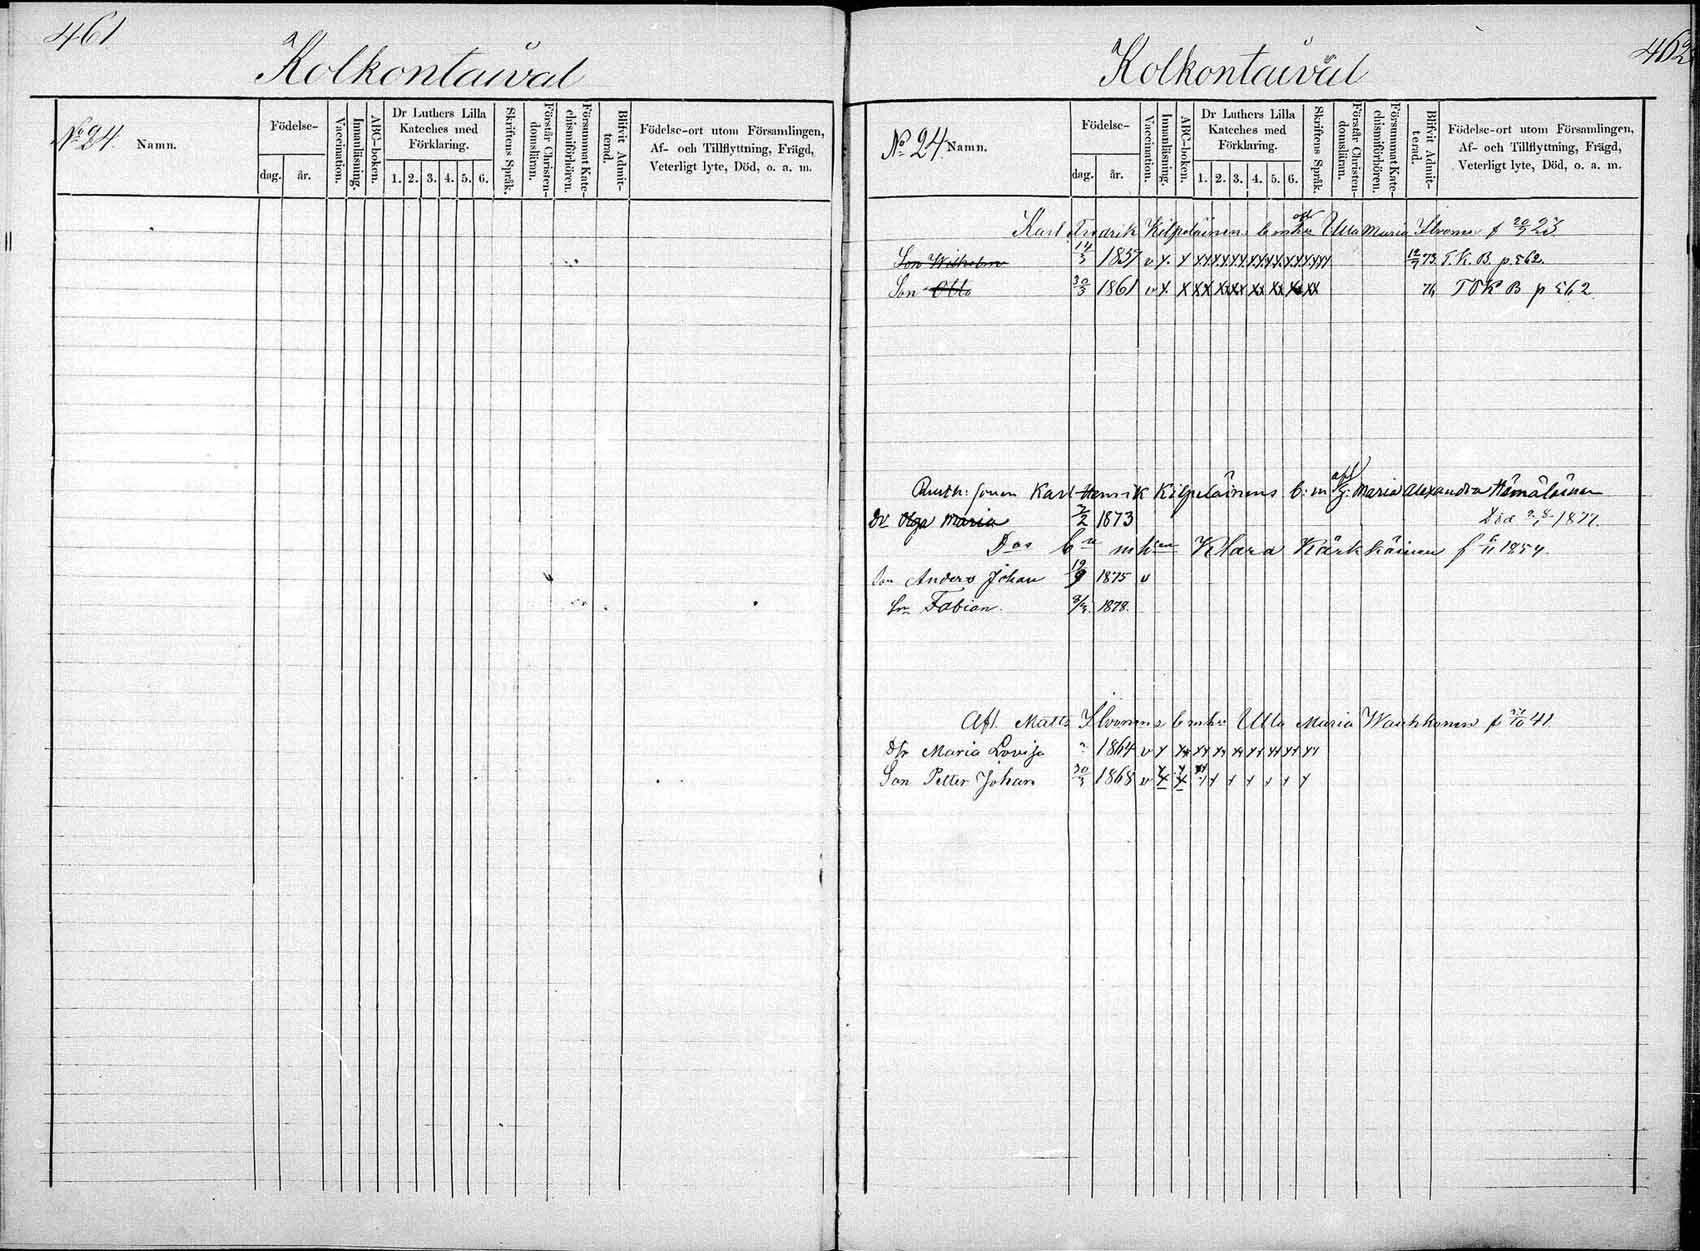 461
Kolkontaival
No 24.
Namn.
Födelse-
dag. år.
Vaccination.
Innanläsning.
ABC-boken.
Dr Luthers Lilla Kateches med Förklaring.
1. 2. 3. 4. 5. 6.
Skriftens Språk.
Förstår Christendomsläran.
Försummat Katechismiförhören.
Blifvit Admitterad.
Födelse-ort utom Församlingen,
Af- och Tillflyttning, Frägd,
Veterligt lyte, Död, o. a. m.
462
Kolkontaival
No 24.
Namn.
Födelse-
dag. år.
Vaccination.
Innanläsning.
ABC-boken.
Dr Luthers Lilla Kateches med Förklaring.
1. 2. 3. 4. 5. 6.
Skriftens Språk.
Förstår Christendomsläran.
Försummat Katechismiförhören.
Blifvit Admitterad.
Födelse-ort utom Församlingen,
Af- och Tillflyttning, Frägd,
Veterligt lyte, Död, o. a. m.
Karl Fredrik Kilpeläinens Ulla Maria Ilvonen f 20/3 23.
Son Wilhelm 14/3 1857 v x x 12/7 73 T. K. B. p. 562.
Son Otto 30/3 1861 v x x 76 T K B p 562
Karl Henrik Kilpeläinens b: m Maria Alexandra Hämäläinen
Dr Olga Maria 2/2 1873 Död 1877.
Dos Klara Kärkkäinen f 1854.
Son Anders Johan 19/9 1875 v
Sn Fabian. 1878.
Afl. Matts Ilvonens Ulla Maria Wauhkonen f 41.
Dfr Maria Lovisa 1864 v x
Son Petter Johan 30/3 1868 v x x x x x x x x